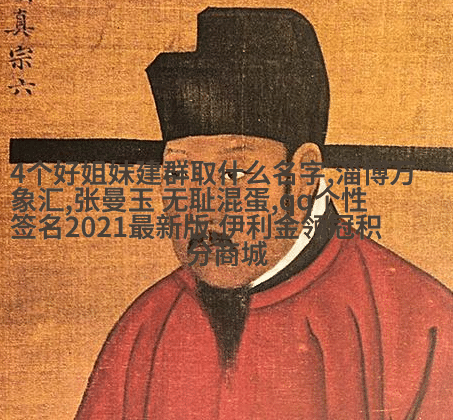 真宗六
4个好姐妹建群取什么名字,淄博万
象汇,张曼玉 无耻混蛋,qq个性
签名2021最新版,伊利金领冠积
分商城